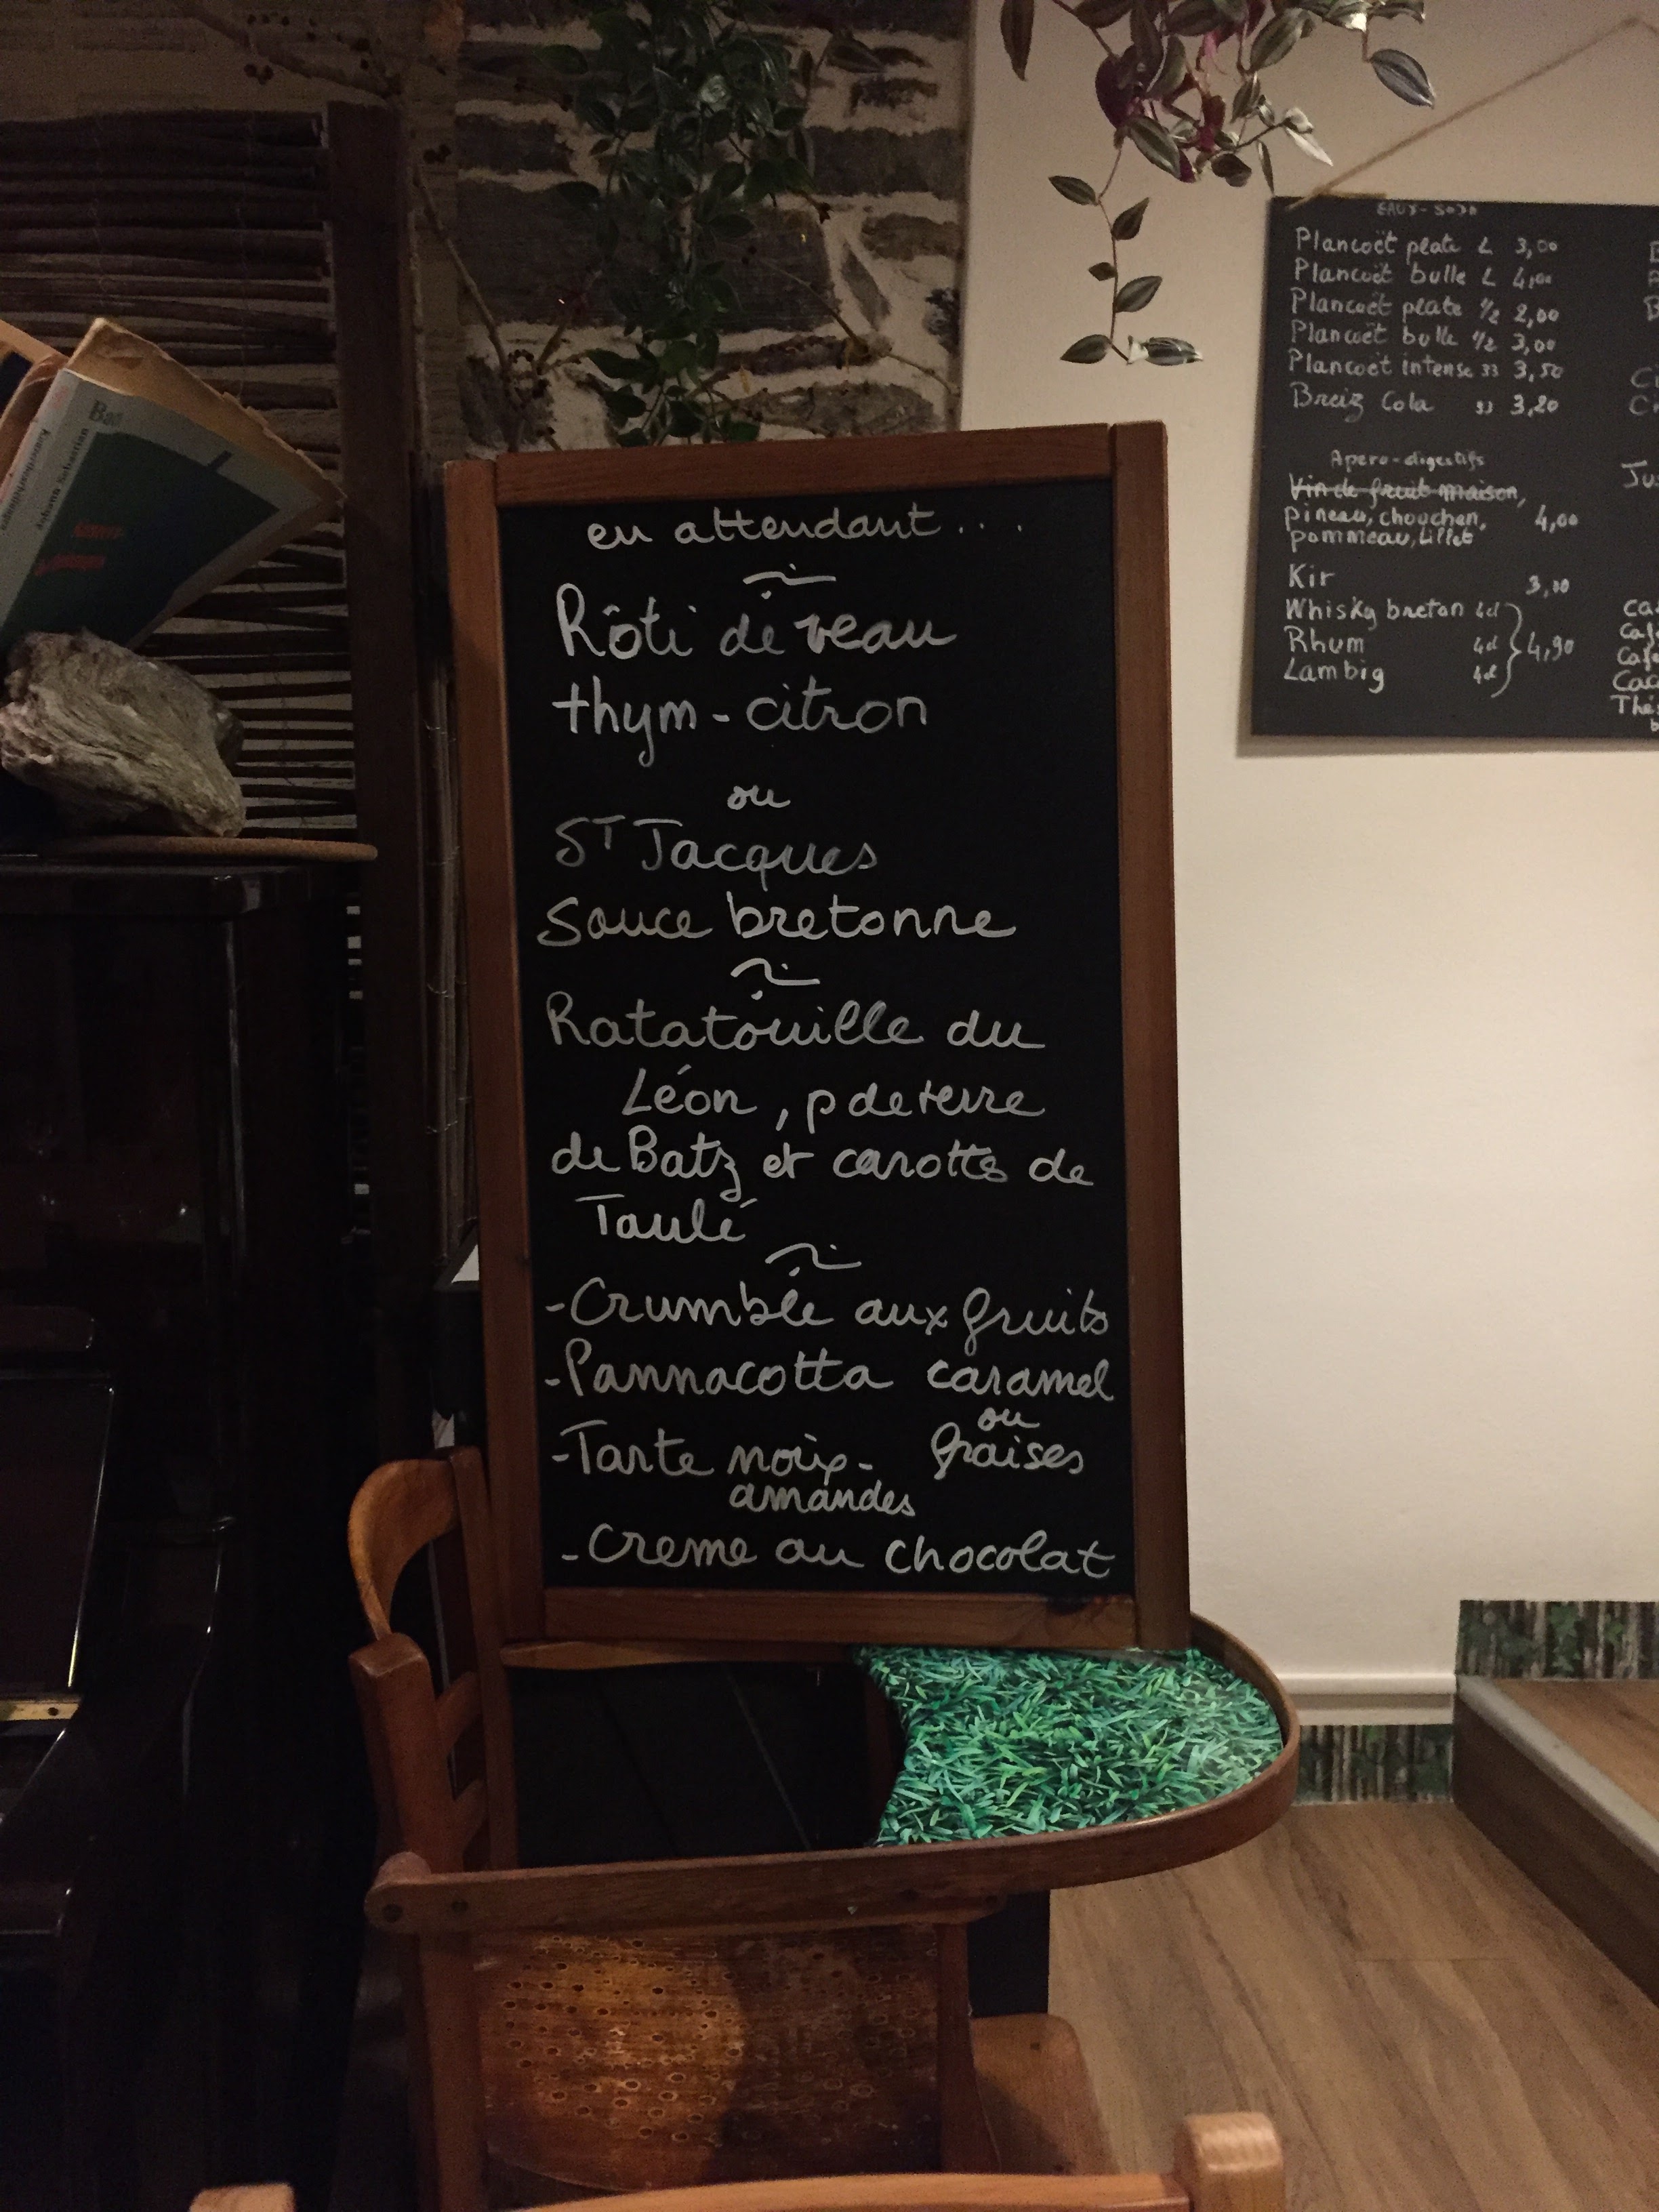 en attendant...
Rôti de veau
thym-citron
ou
ST Jacques
Sauce bretonne
Ratatouille du
Léon, p de terre
de Batz et carottes de
Taulé
-Crumble aux fruits
-Pannacotta caramel
ou
fraises
-Tarte noix-
amandes
-Creme au chocolat
Plancoët plate L 3,00
Plancoët bulle L 4,00
Plancoët plate 1/2 2,00
Plancoët bulle 1/2 3,00
Plancoët intense 33 3,50
Breiz Cola 33 3,20
Apero-digestifs
Vin de fruit maison,
pineau, chouchen, 4,00
pommeau, Lillet
Kir 3,00
Whisky breton 4cl
Rhum 4cl 4,90
Lambig 4cl
Johann Sebastian
Bach